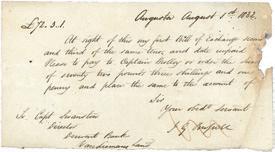 Augusta August 1st 1832
£72.3.1.
At sight of this my first Bill of Exchange second
and third of the same tenor and date unpaid
Please to pay to Captain or order the sum
of seventy two pounds three shillings and one
penny and place the same to the account of
Sir
Your Obdt Servant
To Capt Swanston
Director
Derwent Bank
Vandiemans Land